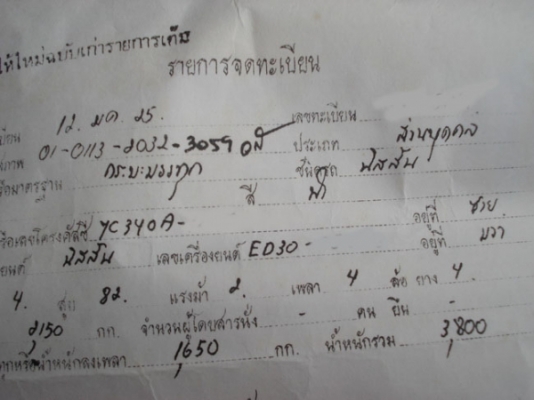 ให้ใหม่ฉบับเก่ารายการเต็ม
รายการจดทะเบียน
12 มค 25. เลขทะเบียน
01-0113-2032-3059 ประเภท ส่วนบุคคล
มาตรฐาน กระบะบรรทุก ชื่อรถ นิสสัน
สี ฟ้า
YC340A- อยู่ที่ ซ้าย
ยนต์ นิสสัน เลขเครื่องยนต์ ED30- อยู่ที่ ขวา
4. สูบ 82. แรงม้า 2. เพลา 4 ล้อ ยาง 4.
2,150 กก. จำนวนผู้โดยสารนั่ง - คน ยืน -
น้ำหนักลงเพลา 1,650 กก. น้ำหนักรวม 3,800